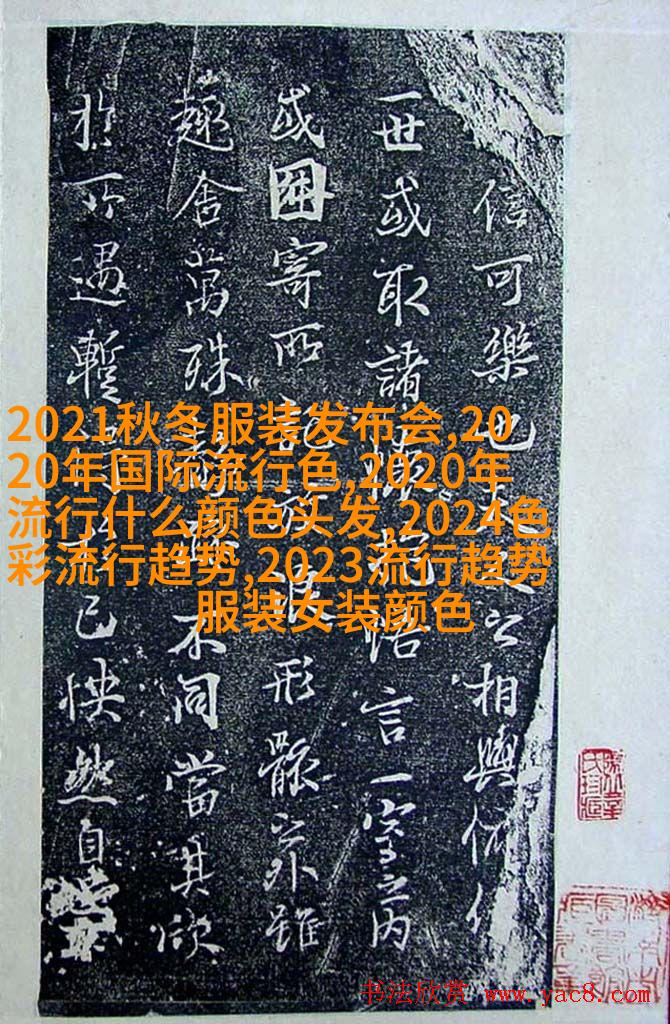 信可樂也夫之相與俯仰
一世或取諸懷抱悟言一室之內
或因寄所託放浪形骸之外雖
趣舍萬殊靜躁不同當其欣
於所遇暫得於己快然自
2021秋冬服装发布会,20
20年国际流行色,2020年
流行什么颜色头发,2024色
彩流行趋势,2023流行趋势
服装女装颜色
书法欣赏 www.yac8.com